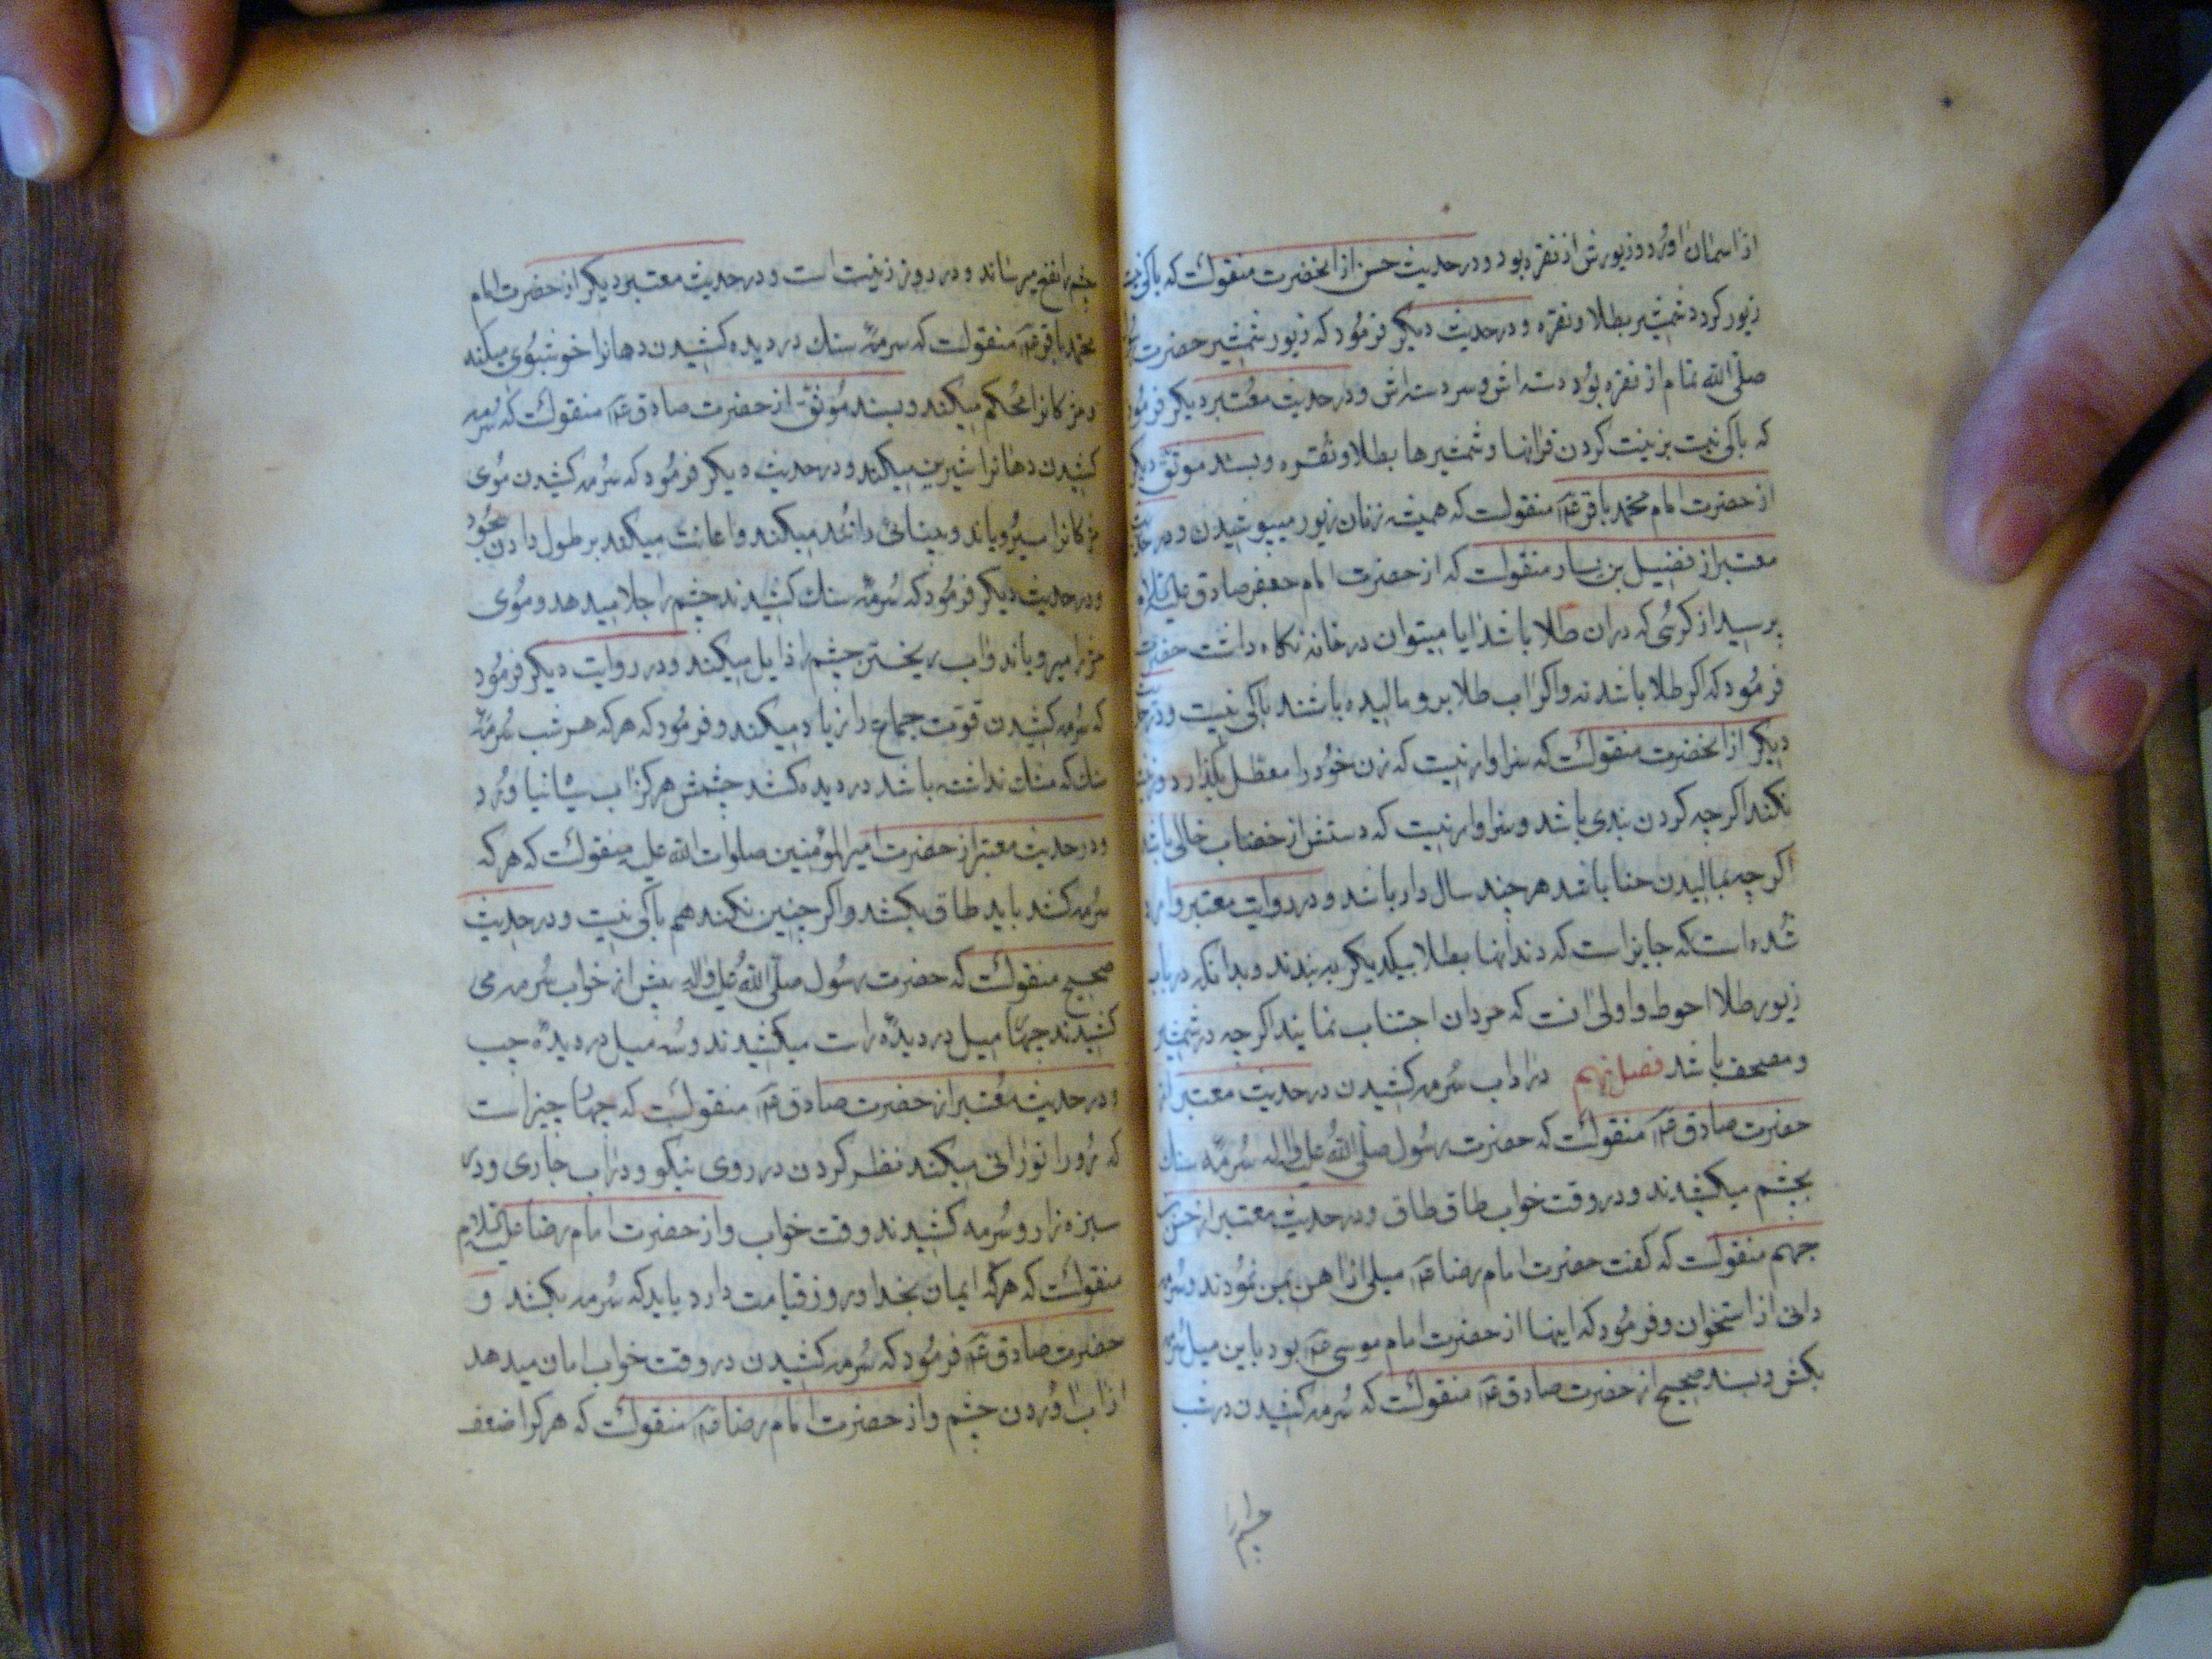 از اسمان اورد و زیورش از نقره بود و در حدیث حسن از انحضرت منقولست که باکی نیست
زیور کردن شمشیر بطلا و نقره و در حدیث دیگر فرمود که زیور شمشیر حضرت
صلی الله تمام از نقره بود دسته اش و سر دسته اش و در حدیث معتبر دیگر فرمود
که باکی نیست بزینت کردن قرانها و شمشیرها بطلا و نقره و بسند موثق دیگر
از حضرت امام محمد باقر ع منقولست که همیشه زنان زیور میپوشیدن و در حدیث
معتبر از فضیل بن یسار منقولست که از حضرت امام جعفر صادق علیه السلام
پرسید از کرسی که دران طلا باشد ایا میتوان در خانه نکاه داشت حضرت
فرمود که اکر طلا باشد نه و اکر اب طلا برو مالیده باشند باکی نیست و در حدیث
دیکر از انحضرت منقولست که سزاوار نیست که زن خود را معطل بکذارد و زینت
نکند اکرچه کردن بندی باشد و سزاوار نیست که دستش از خضاب خالی باشد
اکرچه بمالیدن حنا باشد هرچند سال دار باشد و در روایت معتبر وارد
شده است که جایز است که دندانها بطلا بیکدیکر به بندند و بدانکه در باب
زیور طلا احوط و اولی انست که مردان اجتناب نمایند اکرچه در شمشیر
و مصحف باشد فصل نهم در اداب سرمه کشیدن در حدیث معتبر از
حضرت صادق ع منقولست که حضرت رسول صلی الله علیه و اله سرمه سنک
بچشم میکشیدند و در وقت خواب طاق طاق و در حدیث معتبر از حسن بن
جهم منقولست که کفت حضرت امام رضا ع میلی از اهن بمن نمودند و سرمه
دانی از استخوان و فرمود که اینها از حضرت امام موسی ع بود باین میل سرمه
بکش و بسند صحیح از حضرت صادق ع منقولست که سرمه کشیدن در شب
چشم را
چشم را نفع میرساند و در روز زینت است و در حدیث معتبر دیکر از حضرت امام
محمد باقر ع منقولست که سرمه سنک در دیده کشیدن دهانرا خوشبوی میکند
و مژکانرا محکم میکند و بسند موثق از حضرت صادق ع منقولست که سرمه
کشیدن دهانرا شیرین میکند و در حدیث دیکر فرمود که سرمه کشیدن موی
مژکانرا میرویاند و بینائی را تند میکند و اعانت میکند بر طول دادن سجود
و در حدیث دیکر فرمود که سرمه سنک کشیدند چشم را جلا میدهد و موی
مژه را میرویاند و اب ریختن چشم را زایل میکند و در روایت دیکر فرمود
که سرمه کشیدن قوت جماع را زیاد میکند و فرمود که هرکه هر شب سرمه
سنک که مشک نداشته باشد در دیده کشد چشمش هرکز اب سیاه نیاورد
و در حدیث معتبر از حضرت امیرالمومنین صلوات الله علیه منقولست که هرکه
سرمه کشد باید طاق بکشد و اکر چنین نکند هم باکی نیست و در حدیث
صحیح منقولست که حضرت رسول صلی الله علیه و اله پیش از خواب سرمه می
کشیدند چهار میل در دیده راست میکشیدند و سه میل در دیده چپ
و در حدیث معتبر از حضرت صادق ع منقولست که چهار چیز است
که رو را نورانی میکند نظر کردن در روی نیکو و در اب جاری و در
سبزه زار و سرمه کشیدند وقت خواب و از حضرت امام رضا علیه السلام
منقولست که هرکه ایمان بخدا و روز قیامت دارد باید که سرمه بکشد و
حضرت صادق ع فرمود که سرمه کشیدن در وقت خواب امان میدهد
از اب اوردن چشم و از حضرت امام رضا ع منقولست که هرکرا ضعف